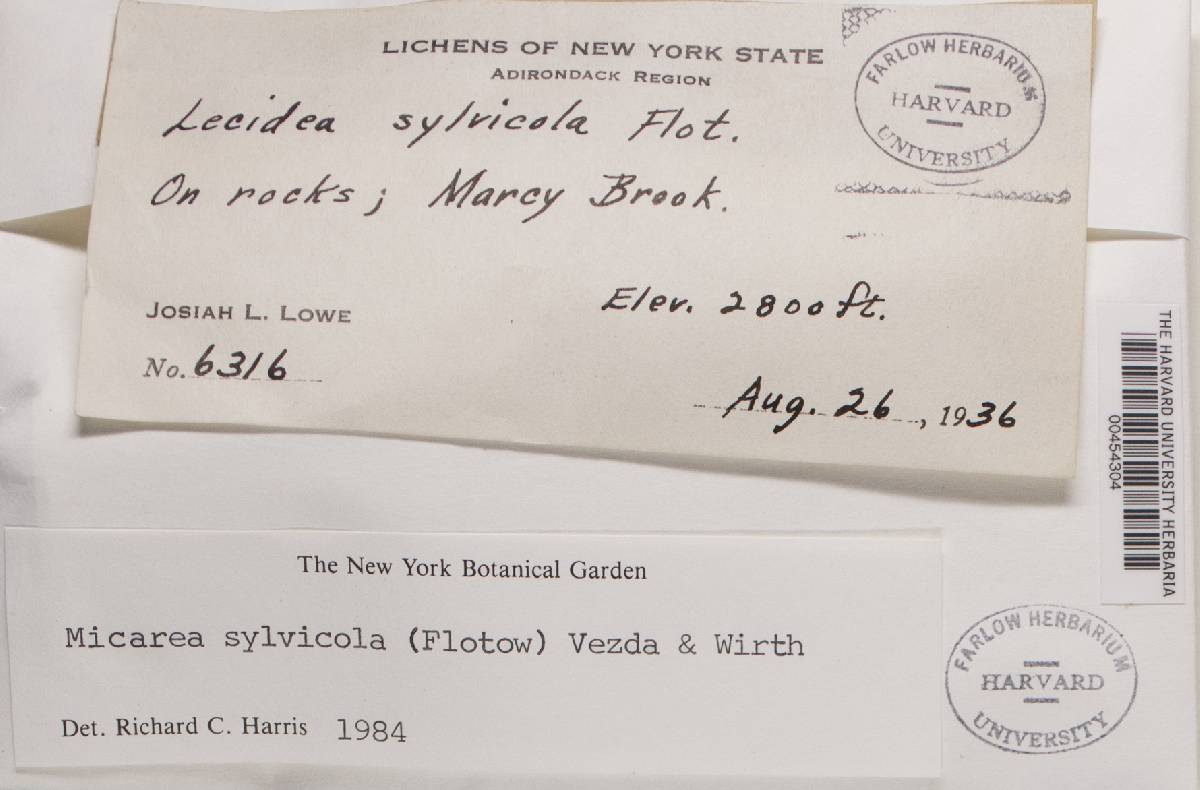 LICHENS OF NEW YORK STATE
ADIRONDACK REGION
Lecidea sylvicola Flot.
On rocks; Marcy Brook.
JOSIAH L. LOWE
Elev. 2800 ft.
No. 6316
Aug. 26, 1936
FARLOW HERBARIUM
HARVARD
UNIVERSITY
THE HARVARD UNIVERSITY HERBARIA
00454304
The New York Botanical Garden
Micarea sylvicola (Flotow) Vezda & Wirth
Det. Richard C. Harris 1984
FARLOW HERBARIUM
HARVARD
UNIVERSITY